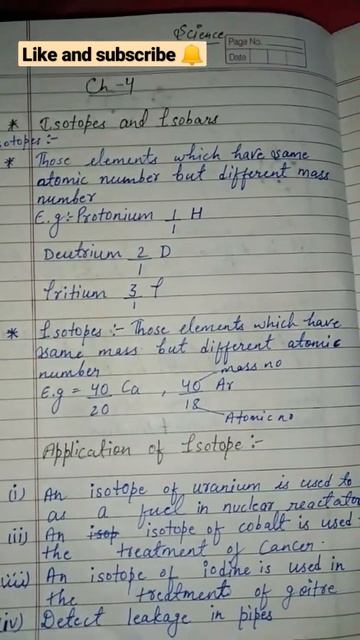 Science
Page No.
Date
Like and subscribe 🔔
Ch-4
* Isotopes and Isobars
sotopes:-
* Those elements which have same
atomic number but different mass
number
E.g:- Protonium 1/1 H
Deutrium 2/1 D
Tritium 3/1 T
* Isotopes :- Those elements which have
same mass but different atomic
number
mass no
E.g = 40/20 Ca , 40/18 Ar
Atomic no
Application of Isotope :-
(i) An isotope of uranium is used to
as a fuel in nuclear reactator
(ii) An isop isotope of cobalt is used
the treatment of Cancer.
(iii) An isotope of iodine is used in
the treatment of goitre
(iv) Detect leakage in pipes